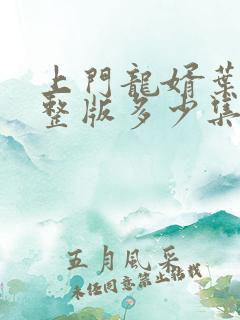 上門龍婿葉
整版多少集
五月風采
未經同意禁止轉載